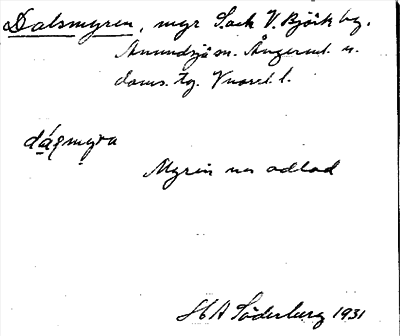 Dalsmyren, myr S.och V. Björk by,
Anundsjö sn. Ångerml. n.
doms. tg. Vnorrl. l.
dáꞎmyra
Myren nu odlad
H A Söderberg 1931